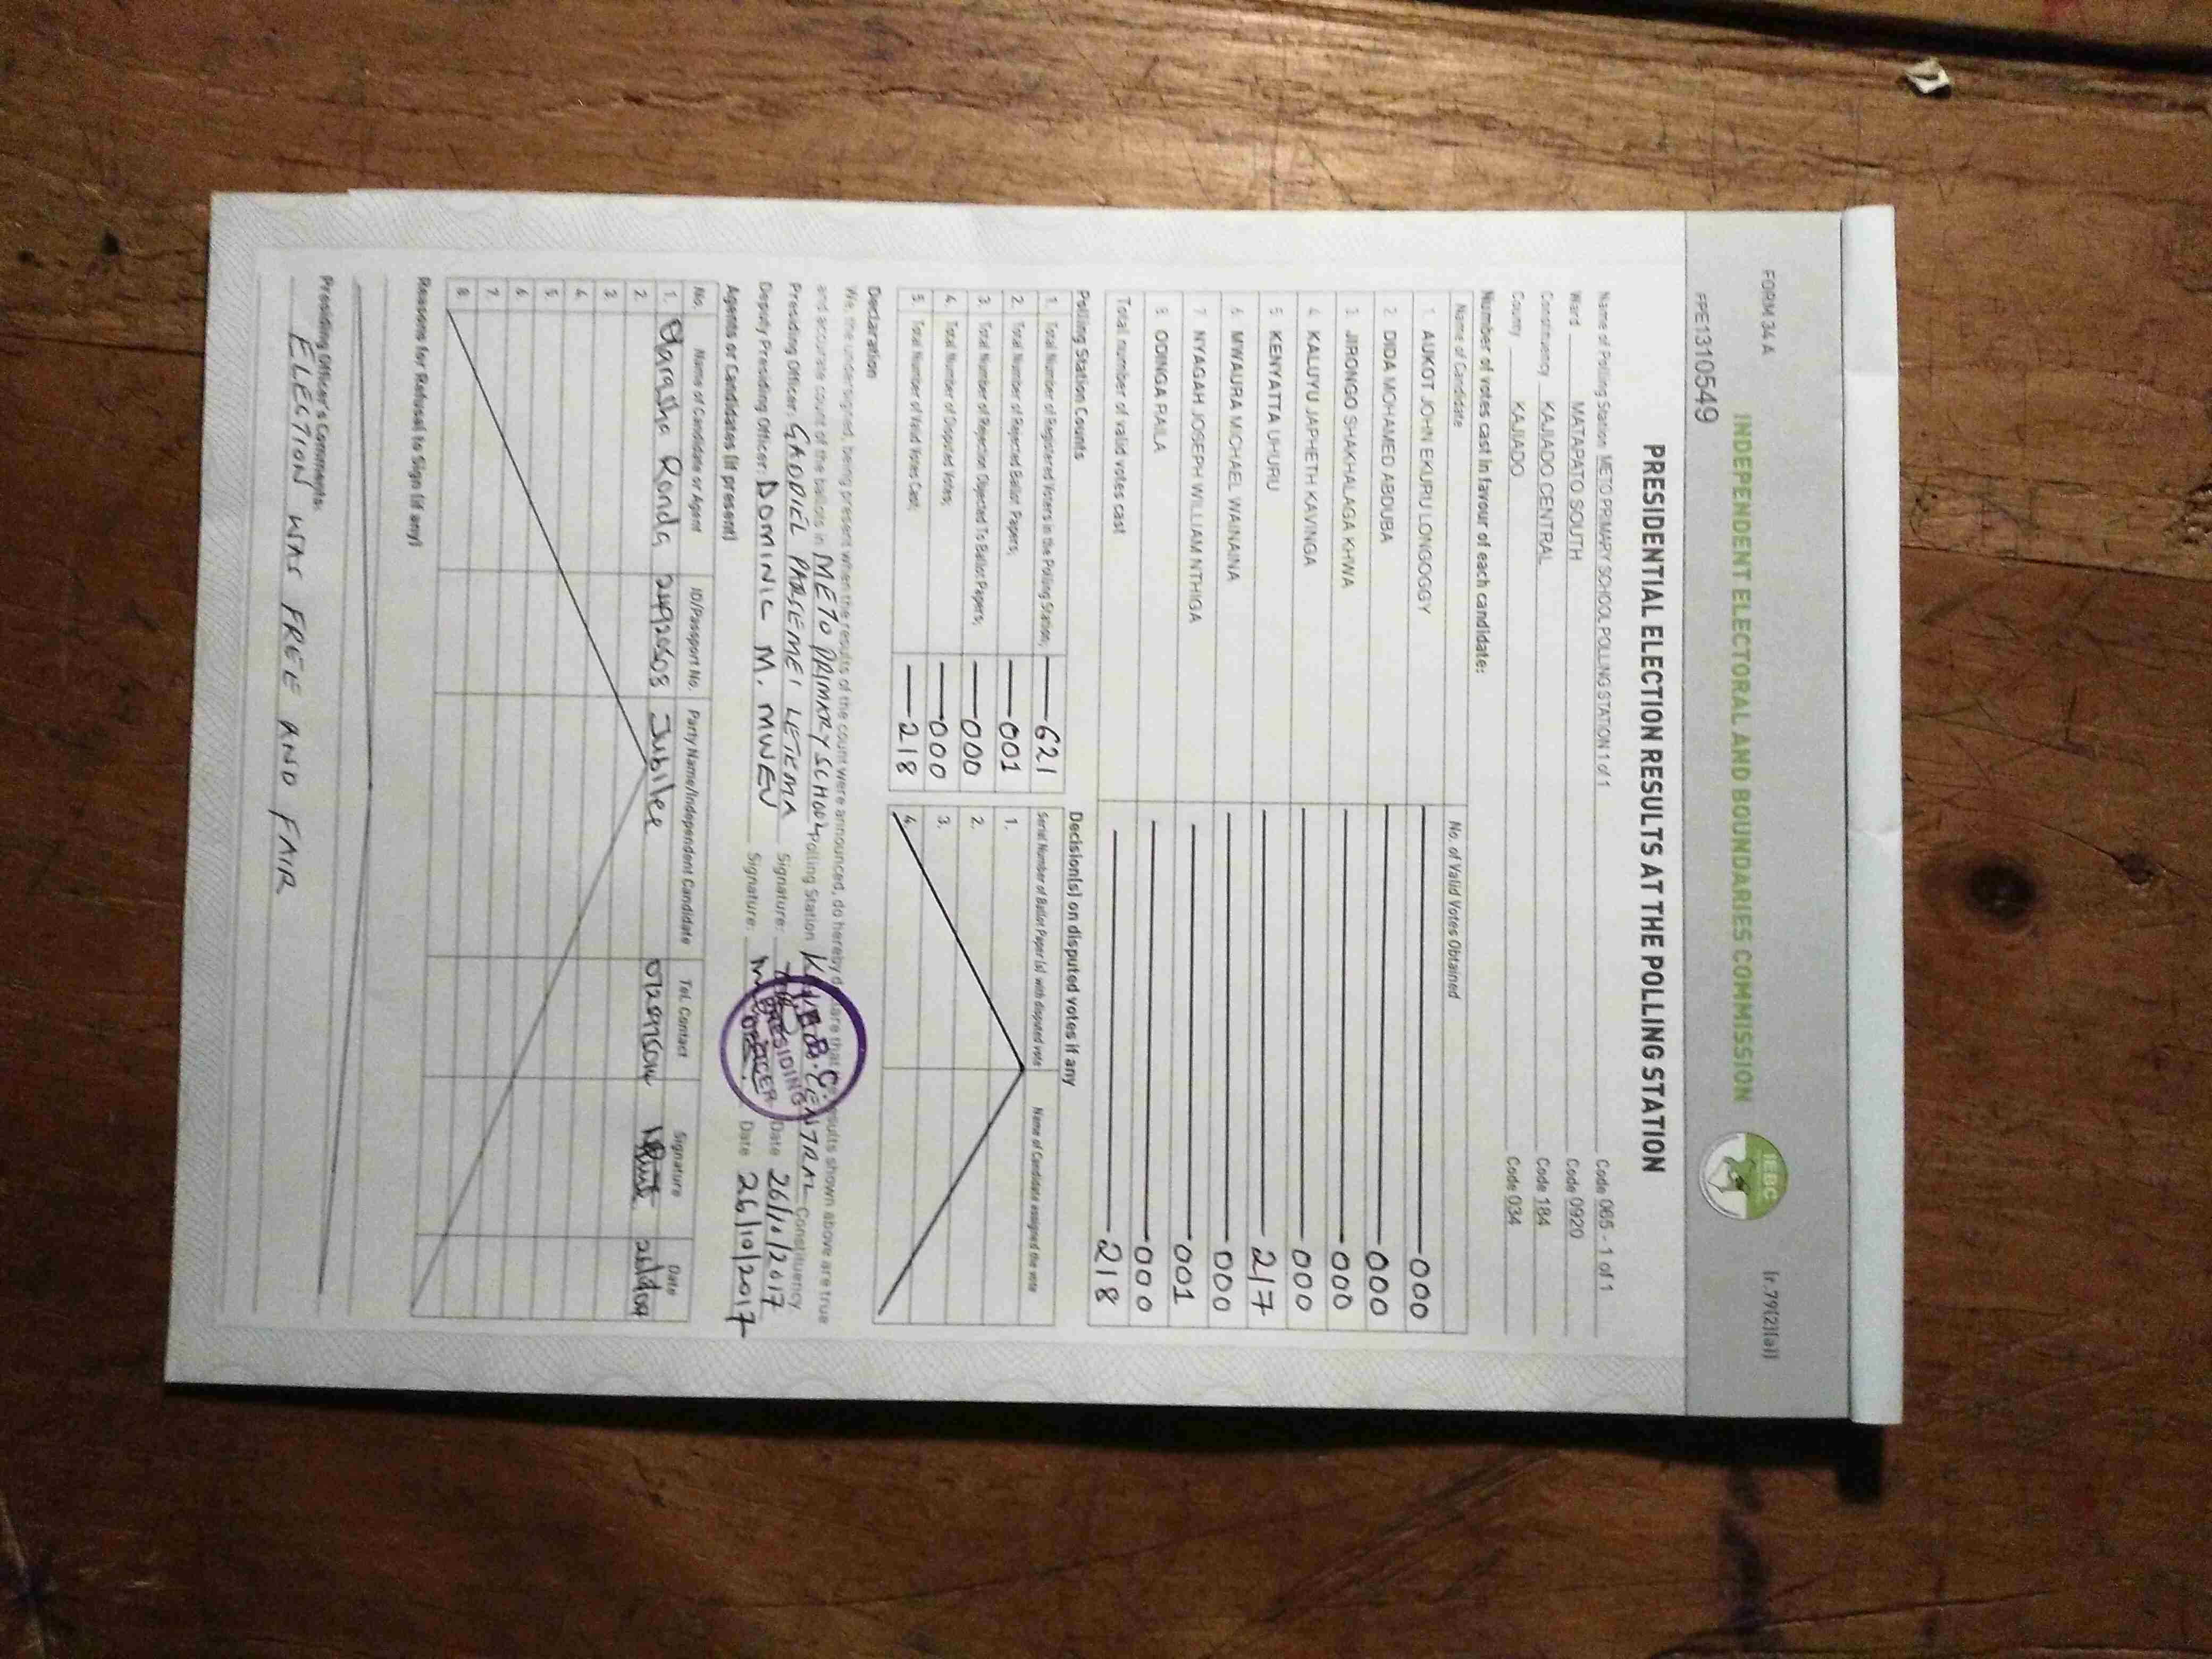 FORM 34 A
[r.79(2)(a)]
INDEPENDENT ELECTORAL AND BOUNDARIES COMMISSION
IEBC
FPE1310549
PRESIDENTIAL ELECTION RESULTS AT THE POLLING STATION
Name of Polling Station METO PRIMARY SCHOOL POLLING STATION 1 of 1 Code 065 - 1 of 1
Ward MATAPATO SOUTH Code 0920
Constituency KAJIADO CENTRAL Code 184
County KAJIADO Code 034
Number of votes cast in favour of each candidate:
Name of Candidate No. of Valid Votes Obtained
1. AUKOT JOHN EKURU LONGOGGY 000
2. DIDA MOHAMED ABDUBA 000
3. JIRONGO SHAKHALAGA KHWA 000
4. KALUYU JAPHETH KAVINGA 000
5. KENYATTA UHURU 217
6. MWAURA MICHAEL WAINAINA 000
7. NYAGAH JOSEPH WILLIAM NTHIGA 001
8. ODINGA RAILA 000
Total number of valid votes cast 218
Polling Station Counts
1. Total Number of Registered Voters in the Polling Station; 621
2. Total Number of Rejected Ballot Papers; 001
3. Total Number of Rejection Objected To Ballot Papers; 000
4. Total Number of Disputed Votes; 000
5. Total Number of Valid Votes Cast; 218
Decision(s) on disputed votes if any
Serial Number of Ballot Paper(s) with disputed vote Name of Candidate assigned the vote
1.
2.
3.
4.
Declaration
We, the undersigned, being present when the results of the count were announced, do hereby declare that the results shown above are true
and accurate count of the ballots in METO PRIMARY SCHOOL Polling Station CENTRAL Constituency
Presiding Officer: GADDIEL PARSEMEI LETEMA Signature: Date 26/10/2017
Deputy Presiding Officer: DOMINIC M. MWEU Signature: Date 26/10/2017
PRESIDING
OFFICER
Agents or Candidates (if present)
No. Name of Candidate or Agent ID/Passport No. Party Name/Independent Candidate Tel. Contact Signature Date
1. Ronda Jubilee
2.
3.
4.
5.
6.
7.
8.
Reasons for Refusal to Sign (if any)
Presiding Officer's Comments:
ELECTION WAS FREE AND FAIR